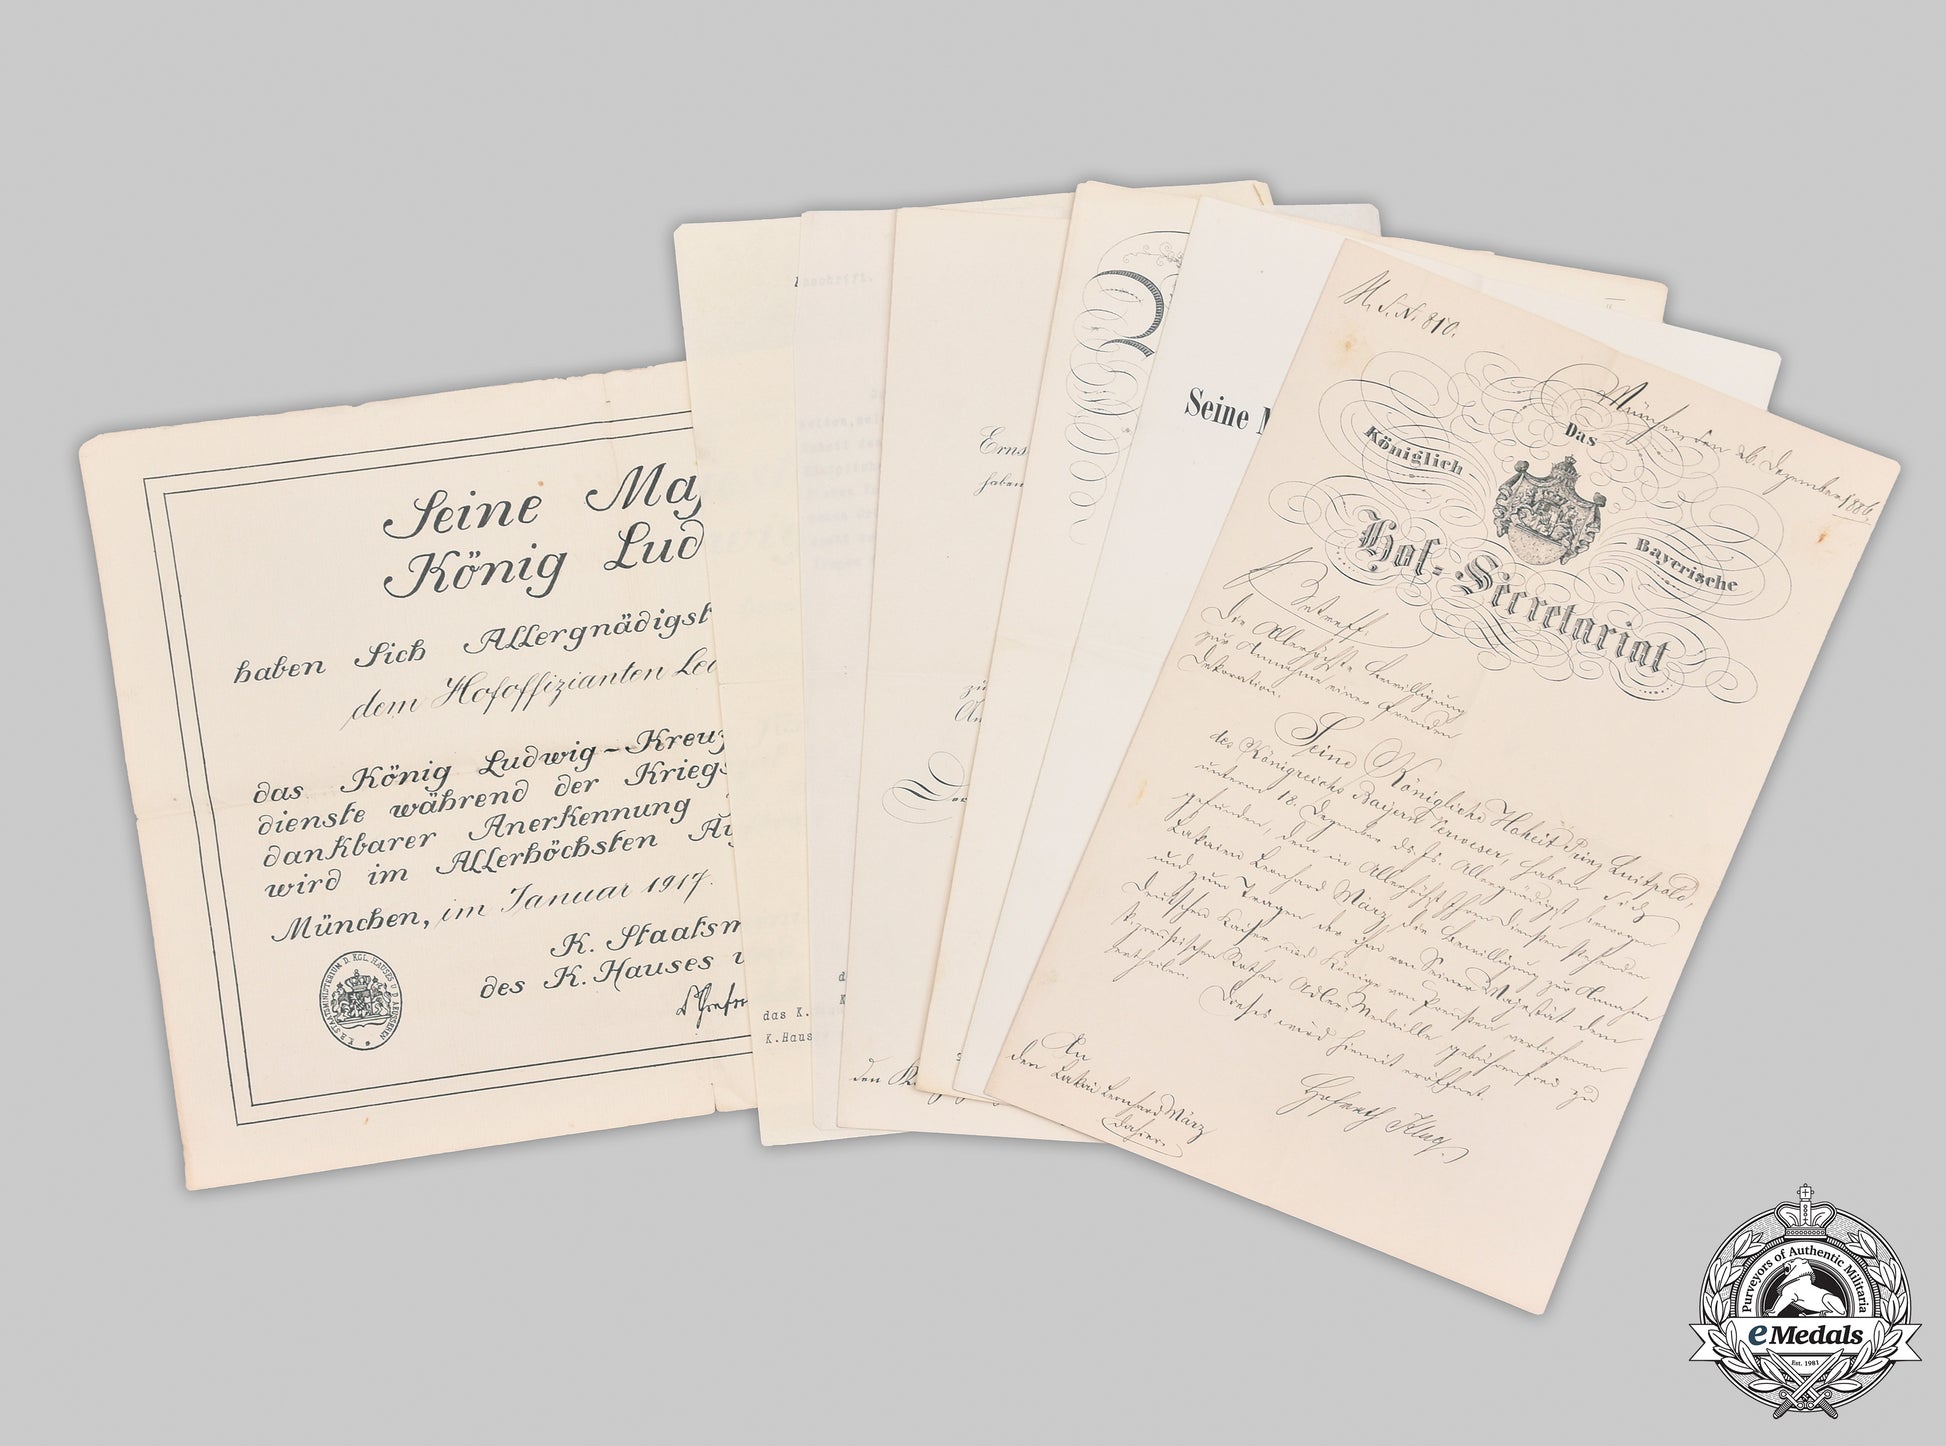 Seine Maj
König Lud
haben Sich Allergnädigst
dem Hofoffizianten Leo
das König Ludwig-Kreuz
dienste während der Kriegs
dankbarer Anerkennung
wird im Allerhöchsten Au
München, im Januar 1917.
K. Staatsm
des K. Hauses u
K.B. STAATSMINISTERIUM D. KGL. HAUSES U. D. AEUSSEREN
das K.
K.Haus
Erns
haben
zu
An
Der
den
Seine M
H. S. N. 810.
München, den 26. Dezember 1886.
Das
Königlich
Bayerische
Hof-Secretariat
Betreff:
Die Allerhöchste Bewilligung
zur Annahme einer fremden
Dekoration.
Seine Königliche Hoheit Prinz Luitpold,
des Königreichs Bayern Verweser, haben Sich
unterm 18. Dezember ds. Js. Allergnädigst bewogen
gefunden, dem in Allerhöchst Ihren Diensten stehenden
Lakaien Leonhard März, die Bewilligung zur Annahme
und zum Tragen der ihm von Seiner Majestät dem
Deutschen Kaiser und Könige von Preußen verliehenen
k. preußischen Rothen Adler-Medaille gebührenfrei zu
ertheilen.
Dieses wird hiemit eröffnet.
Hofrath Klug.
An
den Lakai Leonhard März
dahier.
Purveyors of Authentic Militaria
eMedals
Est. 1981